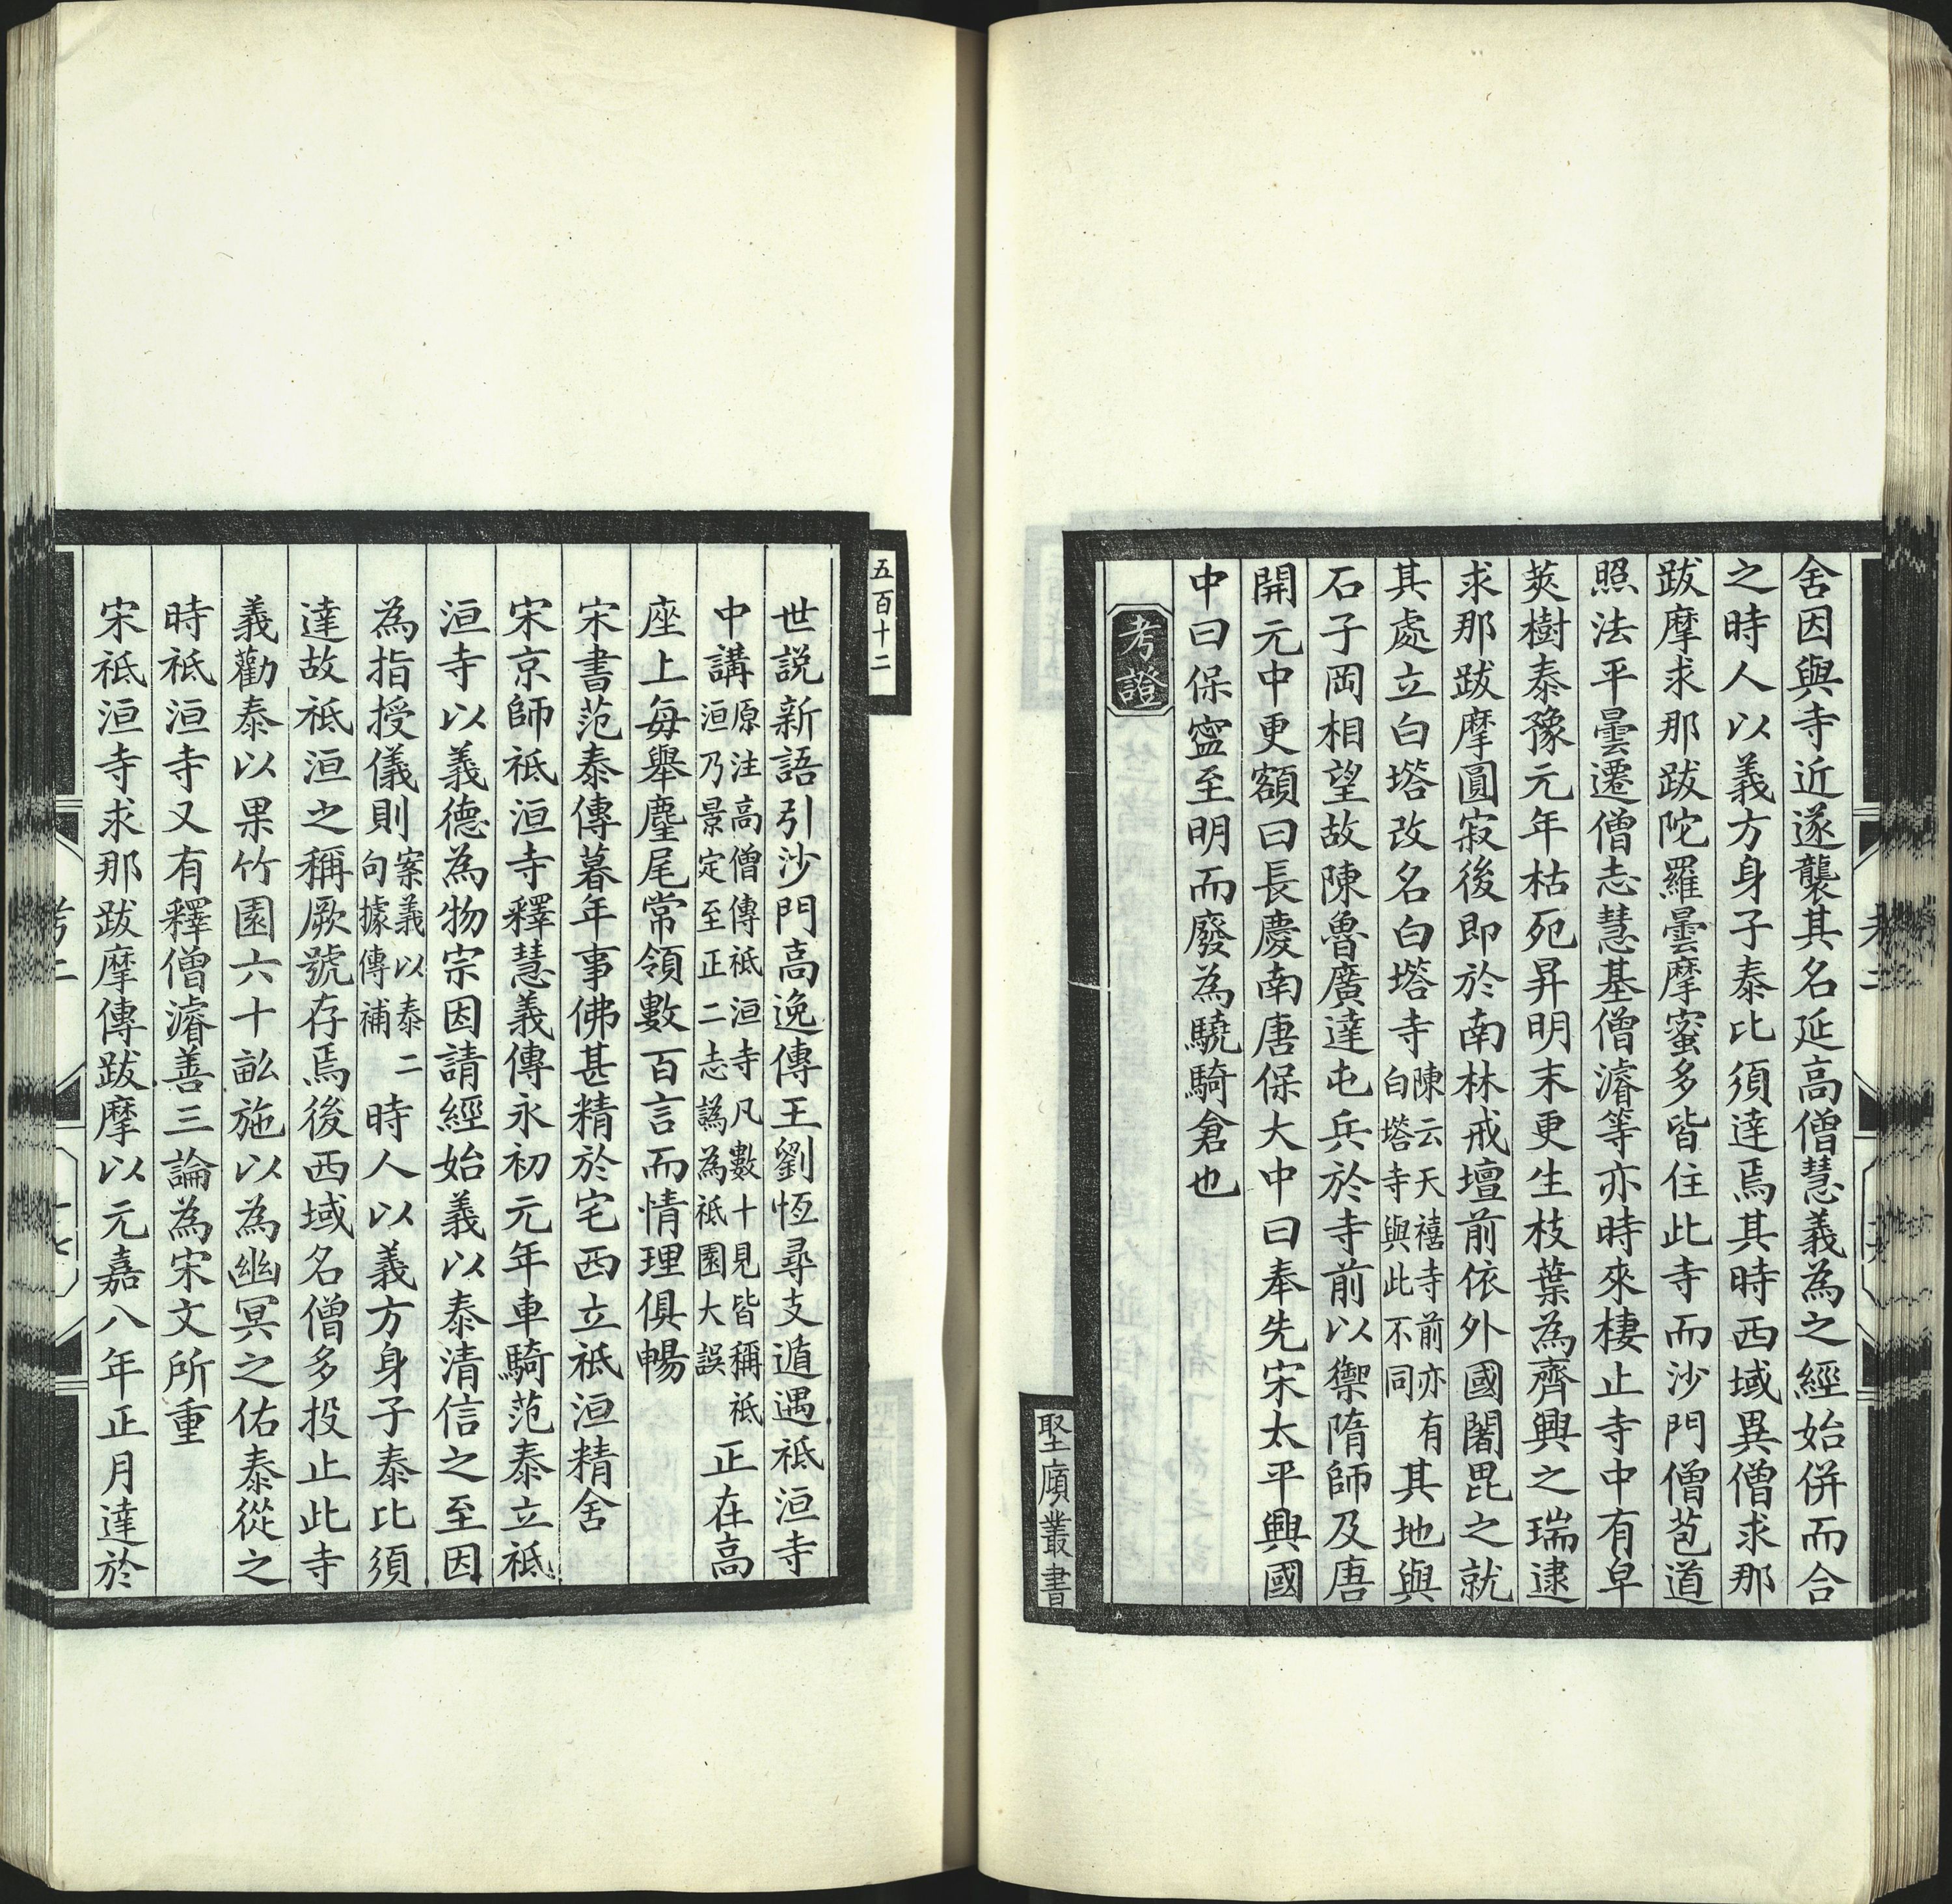 舍因與寺近遂襲其名延高僧慧義為之經始併而合
之時人以義方身子泰比須達焉其時西域異僧求那
跋摩求那跋陀羅曇摩蜜多皆住此寺而沙門僧苞道
照法平曇遷僧志慧基僧濬等亦時來棲止寺中有皁
莢樹泰豫元年枯死昇明末更生枝葉為齊興之瑞逮
求那跋摩圓寂後即於南林戒壇前依外國闍毘之就
其處立白塔改名白塔寺陳云天禧寺前亦有白塔寺與此不同其地與
石子岡相望故陳魯廣達屯兵於寺前以禦隋師及唐
開元中更額曰長慶南唐保大中曰奉先宋太平興國
中曰保寍至明而廢為驍騎倉也
考證
聖廎叢書
五百十二
世説新語引沙門高逸傳王劉恆尋支遁遇祇洹寺
中講原注高僧傳祇洹寺凡數十見皆稱祇洹乃景定至正二志譌為祇園大誤正在高
座上每舉麈尾常領數百言而情理俱暢
宋書范泰傳暮年事佛甚精於宅西立祇洹精舍
宋京師祇洹寺釋慧義傳永初元年車騎范泰立祇
洹寺以義德為物宗因請經始義以泰清信之至因
為指授儀則案義以泰二句據傳補時人以義方身子泰比須
達故祇洹之稱厥號存焉後西域名僧多投止此寺
義勸泰以果竹園六十畝施以為幽冥之佑泰從之
時祇洹寺又有釋僧濬善三論為宋文所重
宋祇洹寺求那跋摩傳跋摩以元嘉八年正月達於